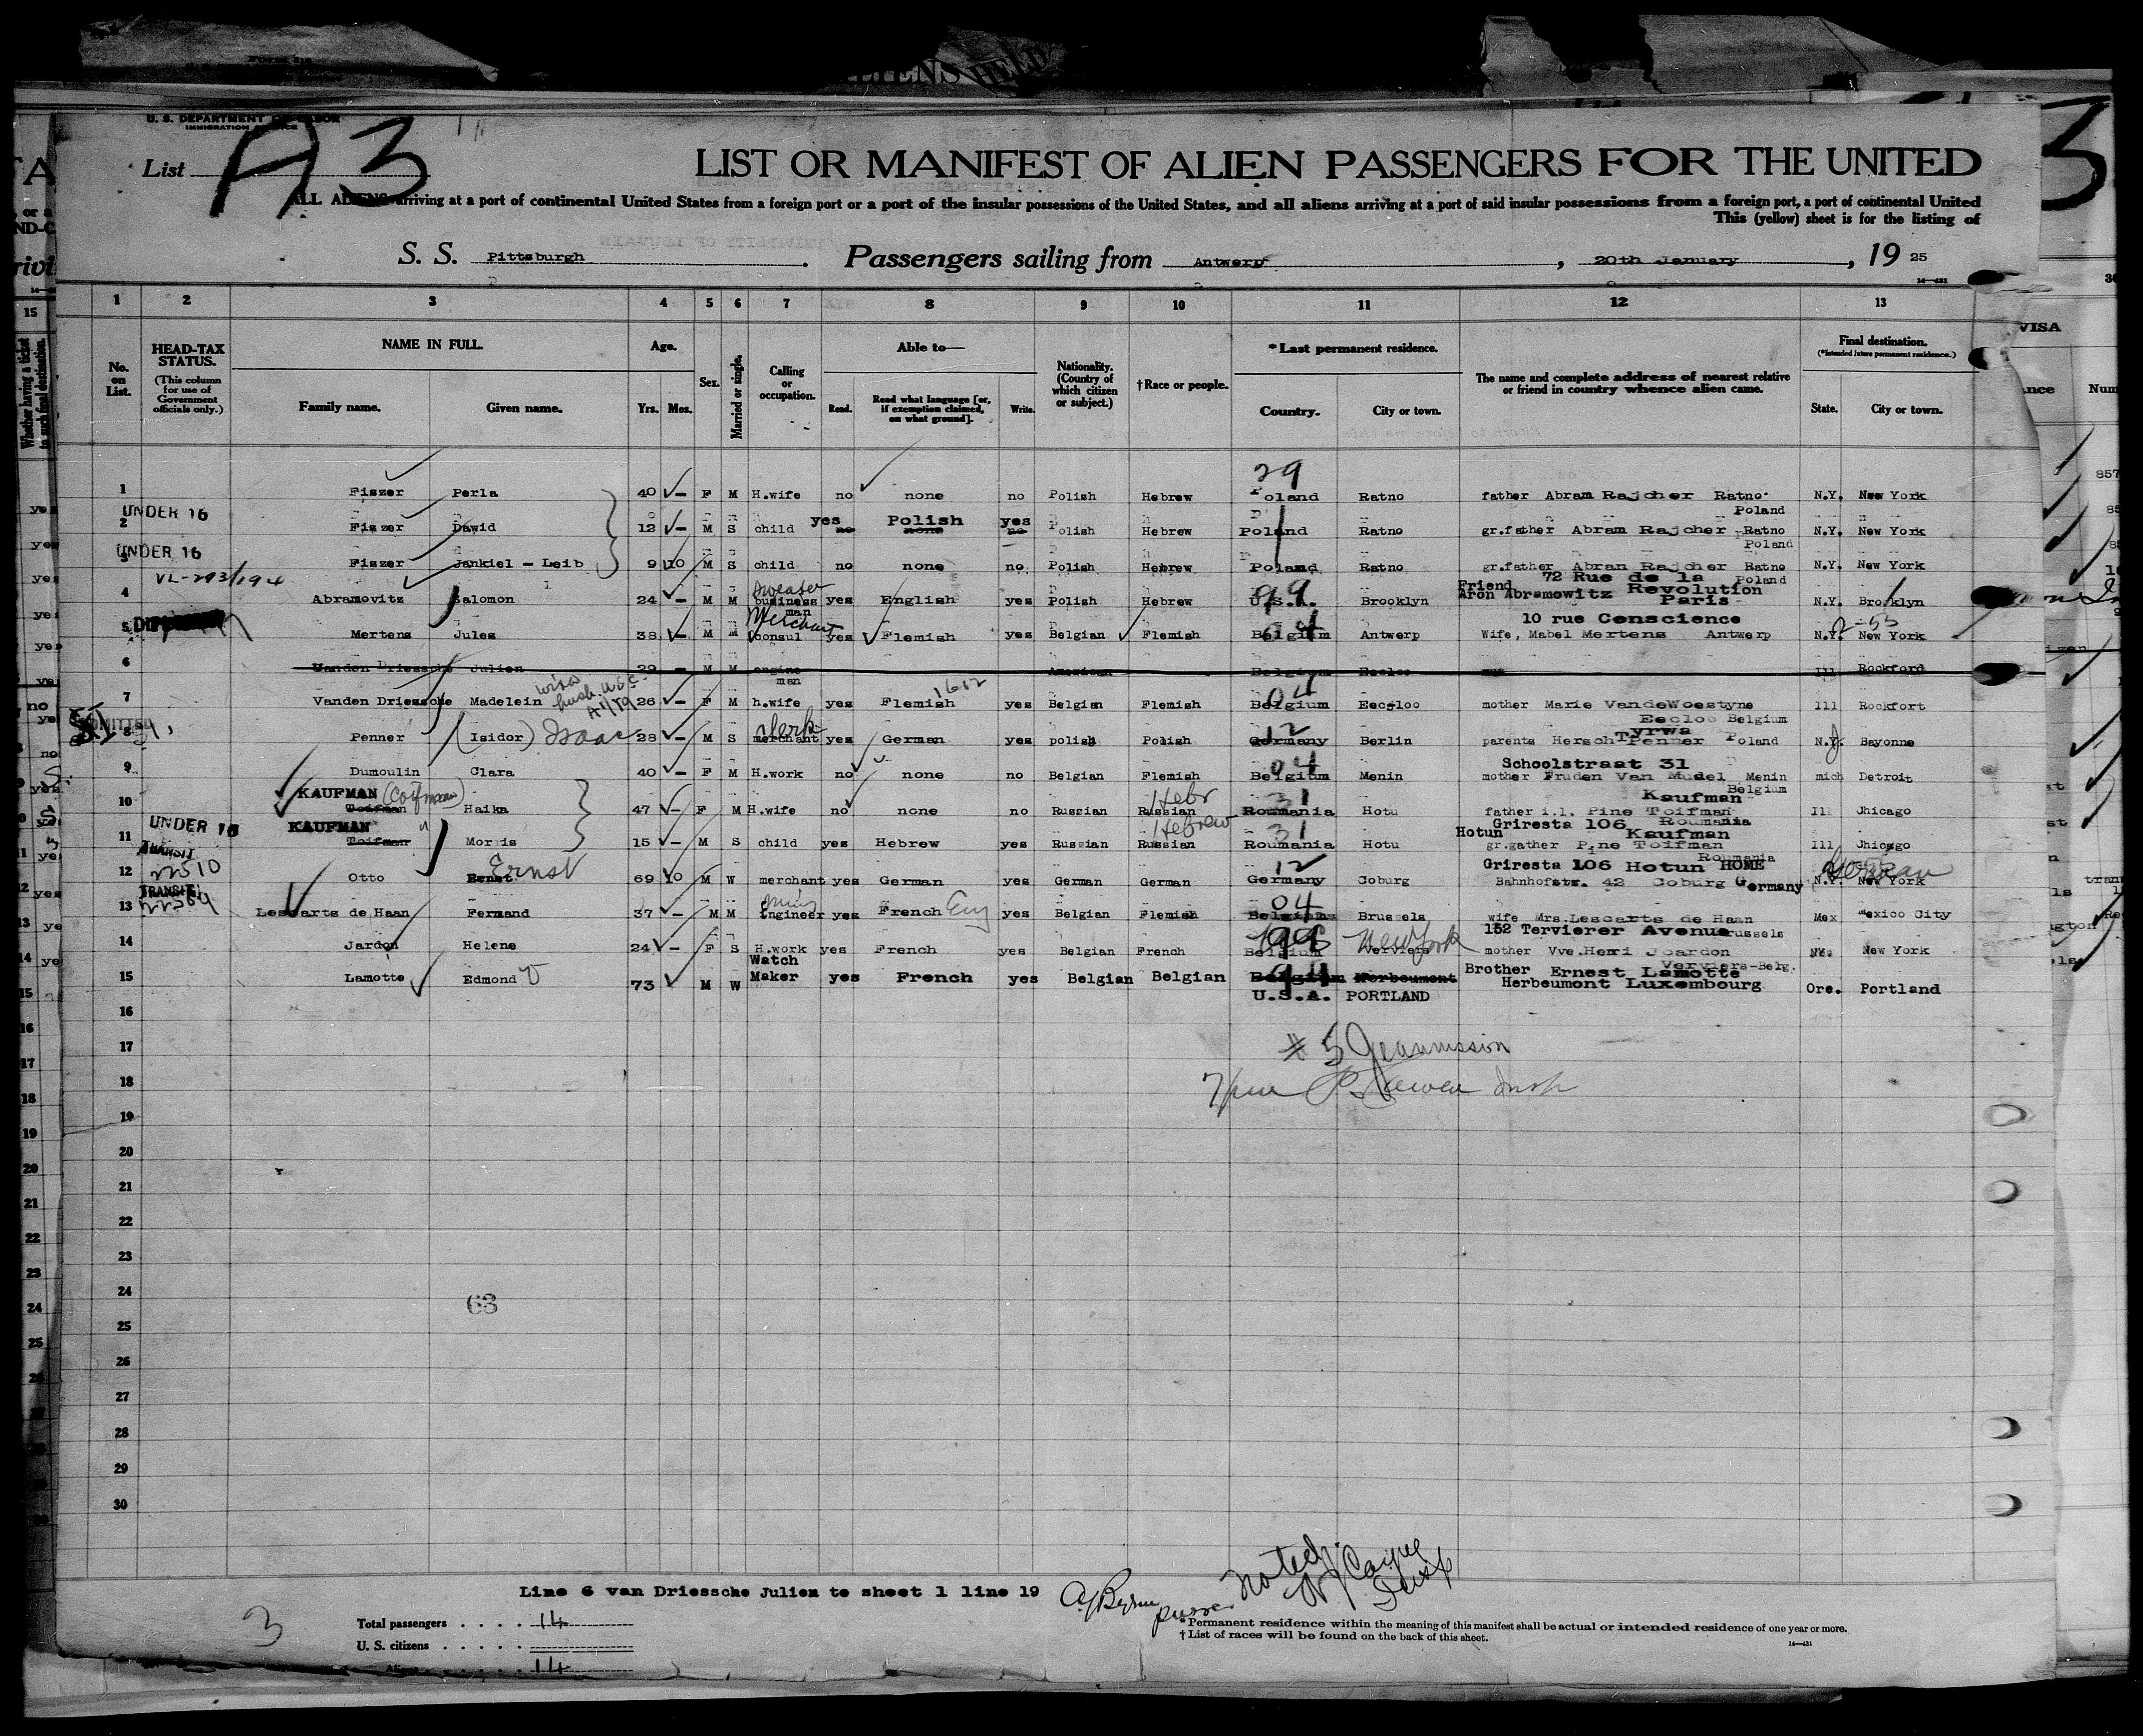 U. S. DEPARTMENT OF LABOR
IMMIGRATION SERVICE
List A3
LIST OR MANIFEST OF ALIEN PASSENGERS FOR THE UNITED
ALL ALIENS arriving at a port of continental United States from a foreign port or a port of the insular possessions of the United States, and all aliens arriving at a port of said insular possessions from a foreign port, a port of continental United
This (yellow) sheet is for the listing of
S. S. Pittsburgh. Passengers sailing from Antwerp, 20th January, 1925
1 2 3 4 5 6 7 8 9 10 11 12 13
No. on List. HEAD-TAX STATUS. (This column for use of Government officials only.) NAME IN FULL. Family name. Given name. Age. Yrs. Mos. Sex. Married or single. Calling or occupation. Able to— Read. Read what language [or, if exemption claimed, on what ground]. Write. Nationality. (Country of which citizen or subject.) †Race or people. *Last permanent residence. Country. City or town. The name and complete address of nearest relative or friend in country whence alien came. Final destination. (*Intended future permanent residence.) State. City or town.
29
1 Fiszer Perla 40 – F M H.wife no none no Polish Hebrew Poland Ratno father Abram Rajcher Ratno N.Y. New York
UNDER 16 yes Polish yes Poland
2 Fiszer Dawid 12 – M S child no none no Polish Hebrew Poland Ratno gr.father Abram Rajcher Ratno N.Y. New York
UNDER 16 Poland
3 Fiszer Jankiel - Leib 9 10 M S child no none no Polish Hebrew Poland Ratno gr.father Abran Rajcher Ratno N.Y. New York
VL-293/194 Sweater 72 Rue de la Poland
4 Abramovitz Salomon 24 – M M business man yes English yes Polish Hebrew U.S.A. 99 Brooklyn Friend Aron Abramowitz Revolution Paris N.Y. Brooklyn
Merchant 10 rue Conscience
5 Mertens Jules 38 – M M consul yes Flemish yes Belgian Flemish Belgium 04 Antwerp Wife, Mabel Mertens Antwerp N.Y. New York
6 Vanden Driessche Julien 29 – M M engine man American Belgium Eecloo Ill Rockford
7 Vanden Driessche Madelein 26 – F M h.wife yes Flemish yes Belgian Flemish Belgium 04 Eecloo mother Marie VandeWoestyne Ill Rockfort
Clerk 12 Eecloo Belgium
8 Penner (Isidor) Isaac 28 – M S merchant yes German yes polish Polish Germany Berlin parents Hersch Penner Tyrwa Poland N.J. Bayonne
04 Schoolstraat 31
9 Dumoulin Clara 40 – F M H.work no none no Belgian Flemish Belgium Menin mother Fruden Van Mudel Menin mich Detroit
KAUFMAN (Coifman) Hebr 31 Kaufman Belgium
10 Toifman Haika 47 – F M H.wife no none no Russian Russian Roumania Hotu father i.l. Pine Toifman Ill Jhicago
UNDER 16 KAUFMAN Hebrew 31 Griresta 106 Roumania Hotun Kaufman
11 Toifman Morris 15 – M S child yes Hebrew yes Russian Russian Roumania Hotu gr.gather Pine Toifman Ill Jhicago
TRANSIT 22510 Ernst 12 Griresta 106 Hotun Roumania HOME
12 Otto Ernst 69 10 M W merchant yes German yes German German Germany Coburg Bahnhofstr. 42 Coburg Germany N.Y. New York
TRANSIT 22364 04
13 Lescarts de Haan Fernand 37 – M M Engineer yes French Eng yes Belgian Flemish Belgium Brussels wife Mrs.Lescarts de Haan Mex Mexico City
99 New York 152 Tervierer Avenue Brussels
14 Jardon Helene 24 – F S H.work yes French yes Belgian French Belgium Verviers mother Vve.Henri Joardon NY. New York
Verviers-Belg.
15 Lamotte Edmond V 73 M W Watch Maker yes French yes Belgian Belgian Belgium Herbeumont Brother Ernest Lamotte Herbeumont Luxembourg Ore. Portland
U.S.A. PORTLAND
16
17
18
19
20
21
22
23
24
63
25
26
27
28
29
30
Line 6 van Driessche Julien to sheet 1 line 19
Noted
3
Total passengers . . . . 14
U. S. citizens . . . . .
Aliens . . . . . 14
*Permanent residence within the meaning of this manifest shall be actual or intended residence of one year or more.
†List of races will be found on the back of this sheet.
14—431